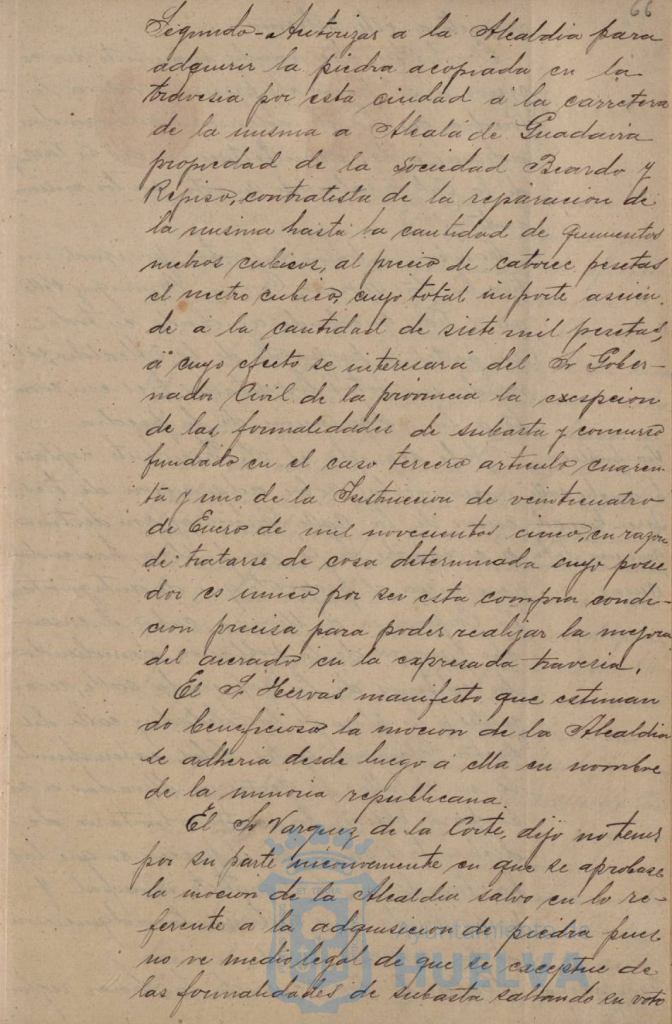 66
Segundo-Autorizar a la Alcaldia para
adquirir la piedra acopiada en la
travesia por esta ciudad á la carretera
de la misma a Alcalá de Guadaira
propiedad de la Sociedad Beardo y
Repiso, contratista de la reparacion de
la misma hasta la cantidad de quinientos
metros cubicos, al precio de catorce pesetas
el metro cubico, cuyo total importe ascien-
de á la cantidad de siete mil pesetas,
á cuyo efecto se interesará del Sr Gober-
nador Civil de la provincia la exepcion
de las formalidades de subasta y concurso
fundado en el caso tercero articulo cuaren-
ta y uno de la Instruccion de veinticuatro
de Enero de mil novecientos cinco, en razon
de tratarse de cosa determinada cuyo posee
dor es unico por ser esta compra condi-
cion precisa para poder realizar la mejora
del acerado en la expresada travesia.
El Sr Hervás manifesto que estiman
do beneficiosa la mocion de la Alcaldia
se adheria desde luego á ella en nombre
de la minoria republicana.
El Sr Vazquez de la Corte, dijo no tener
por su parte inconveniente en que se aprobase
la mocion de la Alcaldia salvo en lo re-
ferente á la adquisicion de piedra pues
no ve medio legal de que se exceptue de
las formalidades de subasta salvando su voto
Ayuntamiento de
HUELVA